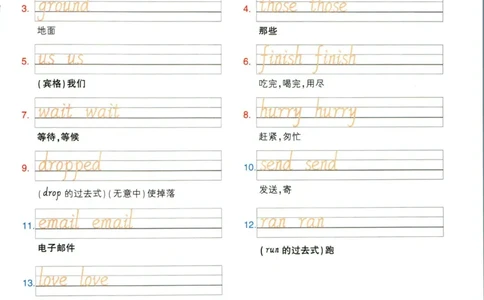 3. ground
地面
4. those those
那些
5. us us
(宾格)我们
6. finish finish
吃完,喝完,用尽
7. wait wait
等待,等候
8. hurry hurry
赶紧,匆忙
9. dropped
(drop 的过去式)(无意中)使掉落
10. send send
发送,寄
11. email email
电子邮件
12. ran ran
(run 的过去式)跑
13. love love